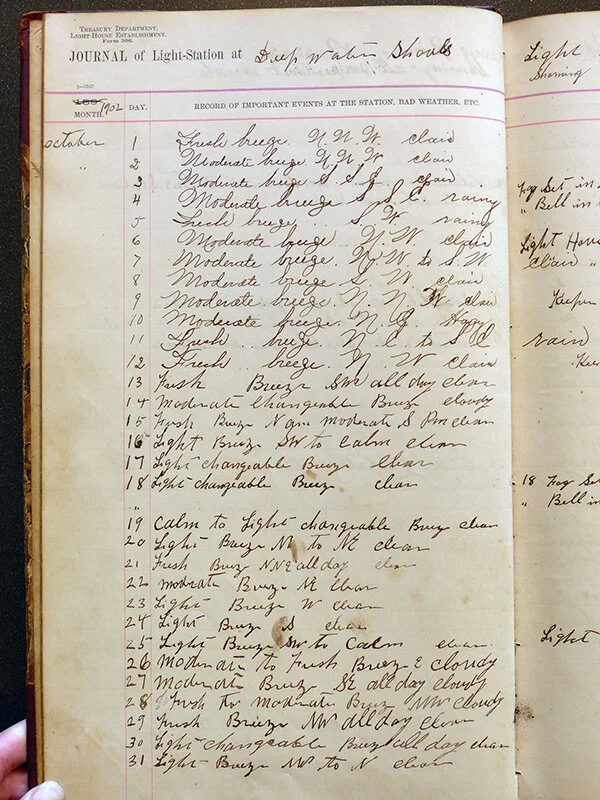 TREASURY DEPARTMENT,
LIGHT-HOUSE ESTABLISHMENT.
Form 306.
JOURNAL of Light-Station at Deep Water Shoals
189
MONTH. 1902 DAY. RECORD OF IMPORTANT EVENTS AT THE STATION, BAD WEATHER, ETC.
October 1 Fresh breeze. N. N. W. clair
" 2 Moderate breeze N N W. clair
3 Moderate breeze S. S. E. clair
4 Moderate breeze S. S. E. rainy
5 Fresh breeze .. S. W. rainy
6 Moderate breeze .. N. W. clair
7 Moderate breeze. N. W to S. W
8 Moderate breeze S. W clair
9 Moderate breeze. N. N. W clair
10 Moderate breeze. N. E.
11 Fresh .. breeze N E to S E
12 Fresh .. breeze. N. W clair
13 Fresh Breeze SW all day clear
14 Moderate Changeable Breeze cloudy
15 Fresh Breeze N am moderate S Pm clear
16 Light Breeze SW to Calm clear
17 Light changeable Breeze clear
18 Light changeable Breeze clear
"
19 Calm to Light changeable Breeze clear
20 Light Breeze N to NE clear
21 Fresh Breeze NNE all day clear
22 moderate Breeze NE clear
23 Light Breeze W clear
24 Light Breeze S clear
25 Light Breeze SW to Calm clear
26 Moderate to Fresh Breeze E cloudy
27 Moderate Breeze SE all day cloudy
28 Fresh to Moderate Breeze NW cloudy
29 Fresh Breeze NW all day clear
30 Light changeable Breeze all day clear
31 Light Breeze NW to N clear
Light
Fog Set in
" Bell in
Light House
Clair "
Keeper
rain
18 Fog Set
" Bell in
Light